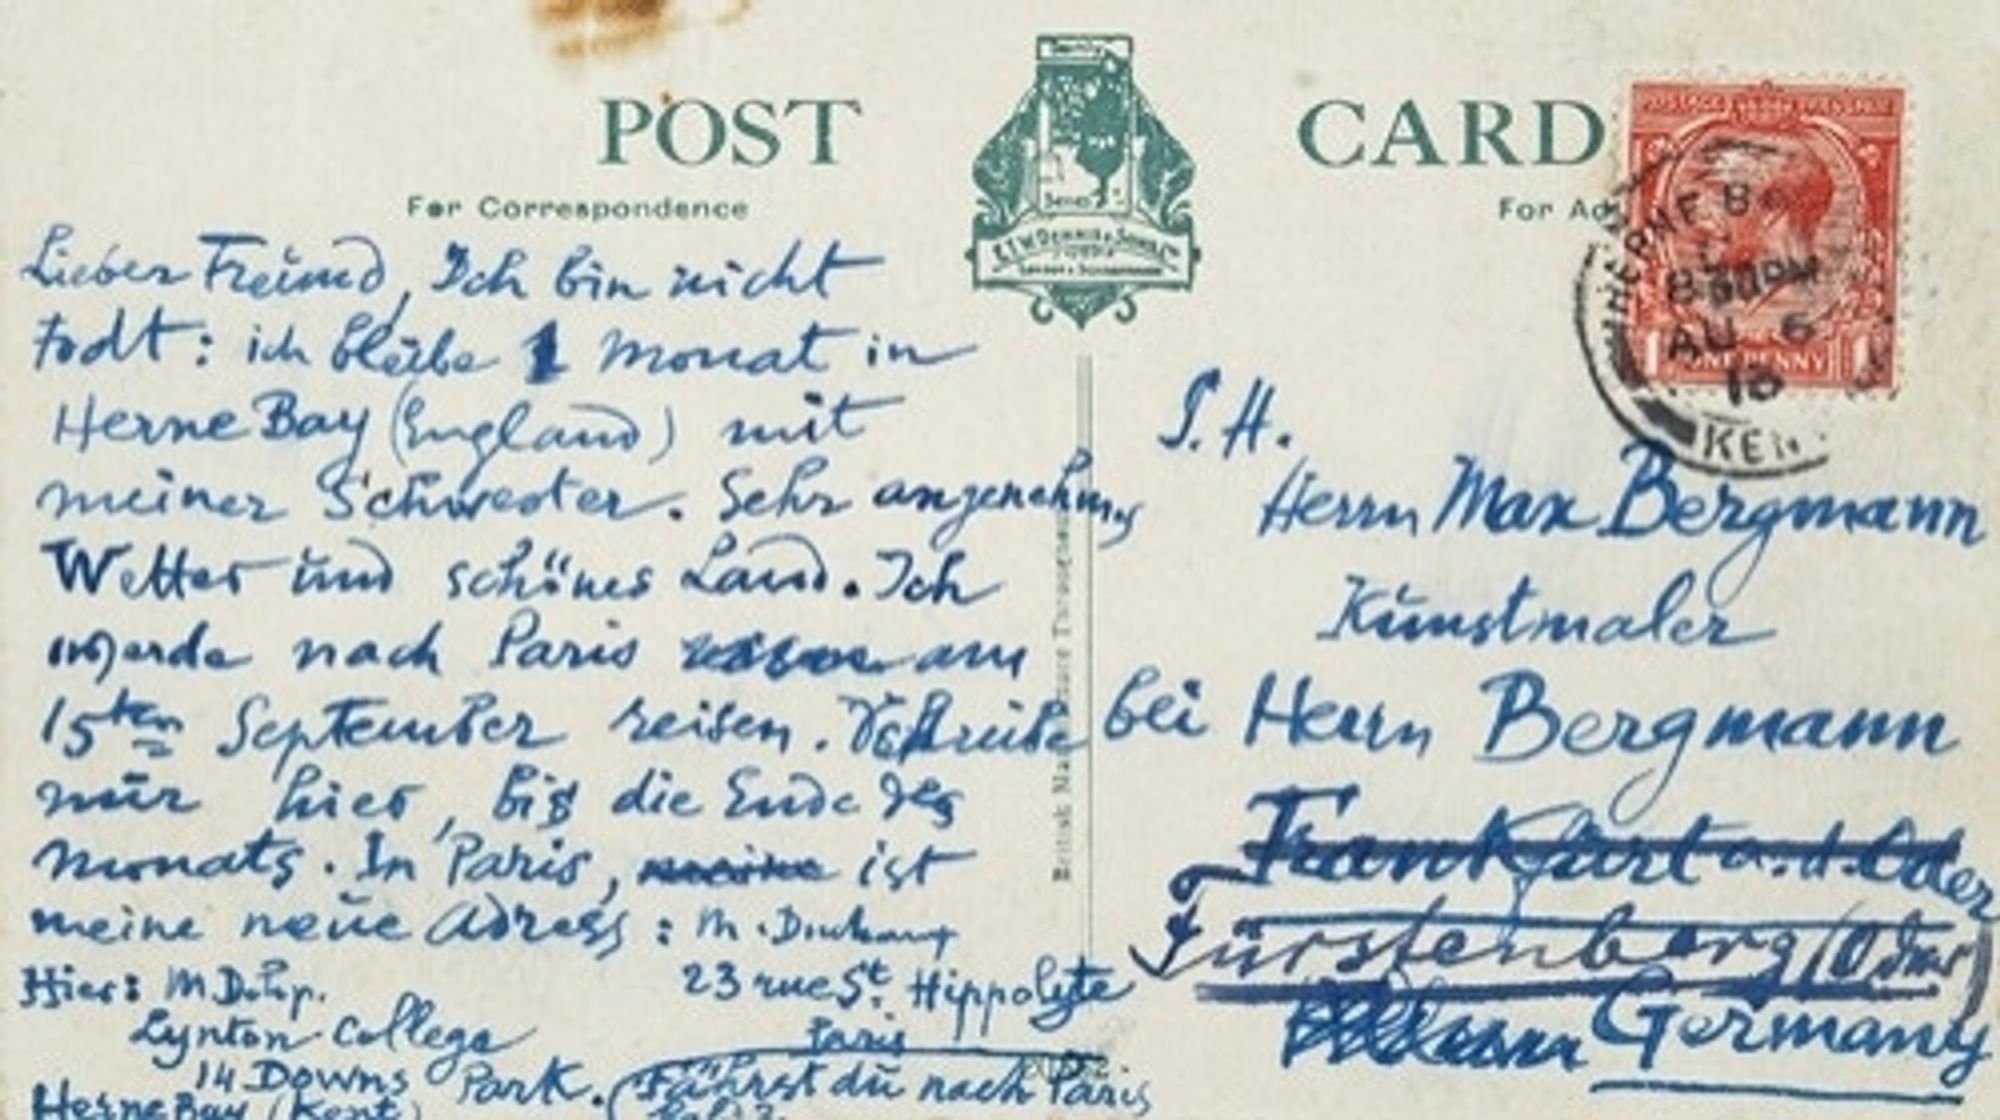 POST CARD
For Correspondence
For Ad
E.T.W. Dennis & Sons Ltd
London & Scarborough
HERNE BA
8 30 PM
AU 6
13
KEN
ONE PENNY
Lieber Freund, Ich bin nicht
todt: ich bleibe 1 Monat in
Herne Bay (England) mit
meiner Schwester. Sehr angenehmes
Wetter und schönes Land. Ich
werde nach Paris am
15ten September reisen. Schreibe
nur hier, bis die Ende des
Monats. In Paris, ist
meine neue Adress: M. Duchamp
23 rue St. Hippolyte
Paris
Hier: M Dchp.
Lynton College
14 Downs Park.
Herne Bay (Kent)
(Fährst du nach Paris
British Manufacture Throughout
S. H.
Herrn Max Bergmann
Kunstmaler
bei Herrn Bergmann
Frankfurt a. d. Oder
Fürstenberg (Oder)
Germany